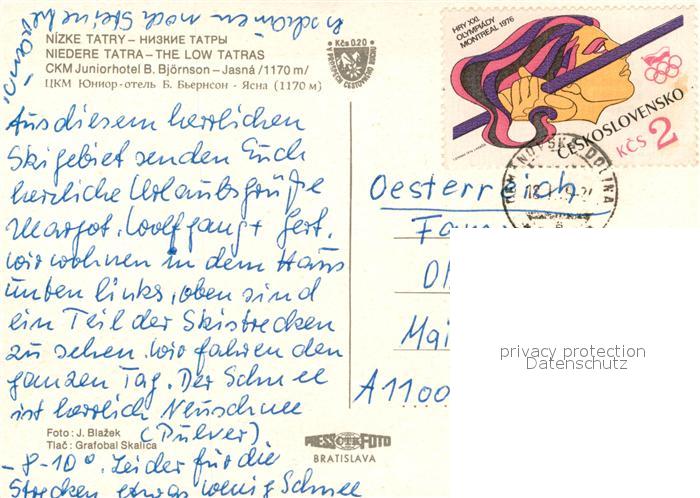 NÍZKE TATRY – НИЗКИЕ ТАТРЫ
NIEDERE TATRA – THE LOW TATRAS
CKM Juniorhotel B. Björnson – Jasná /1170 m/
ЦКМ Юниор-отель Б. Бьернсон - Ясна (1170 м)
Kčs 0.20
V PROSPECH CESTOVNÉHO RUCHU
HRY XXI.
OLYMPIÁDY
MONTREAL 1976
ČESKOSLOVENSKO
KČS 2
DOLINA
Aus diesem herrlichen
Skigebiet senden Euch
herrliche Urlaubsgrüße
Margot, Wolfgang + Gert.
Wir wohnen in dem Haus
unten links, oben sind
ein Teil der Skistrecken
zu sehen. Wir fahren den
ganzen Tag. Der Schnee
ist herrlich Neuschnee
(Pulver).
– 8-10°. Leider für die
Strecken etwas wenig Schnee
schauen noch Steine
Oesterreich
Fam
Mai
A 1100
Foto: J. Blažek
Tlač: Grafobal Skalica
PRESSFOTO
BRATISLAVA
privacy protection
Datenschutz